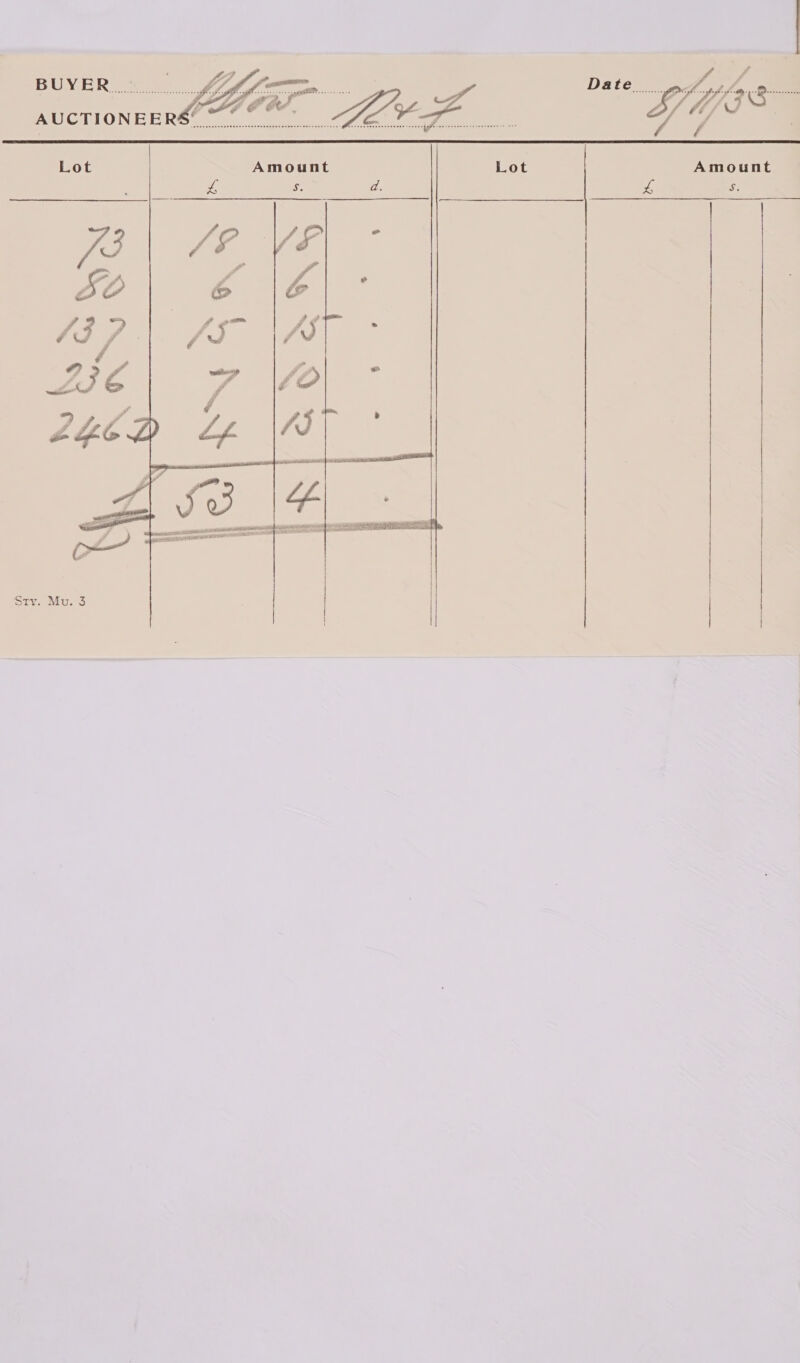 BUYER
Date
AUCTIONEERS
Lot Amount Lot Amount
£ s. d. £ s.
73 18 18 -
80 6 6 -
137 15 15 -
236 7 10 -
246D 4 15 -
£ 53 4 .
Sty. Mu. 3